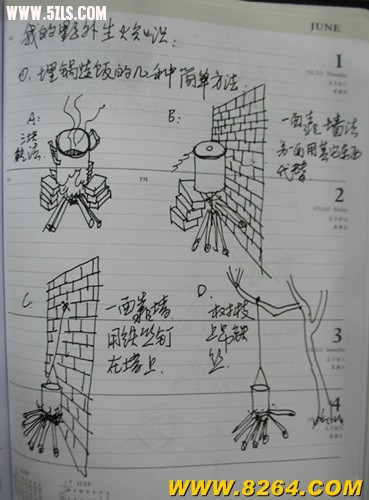 www.5ZLS.COM
我的野外生火知识:
JUNE
1
①. 埋锅造饭的几种简单方法.
A:
B:
一面靠墙法
另一面用其它东西
代替.
2
C:
一面靠墙
用铁丝钉
在墙上.
D.
树枝
上吊铁
丝.
3
4
JULY
www.8264.com